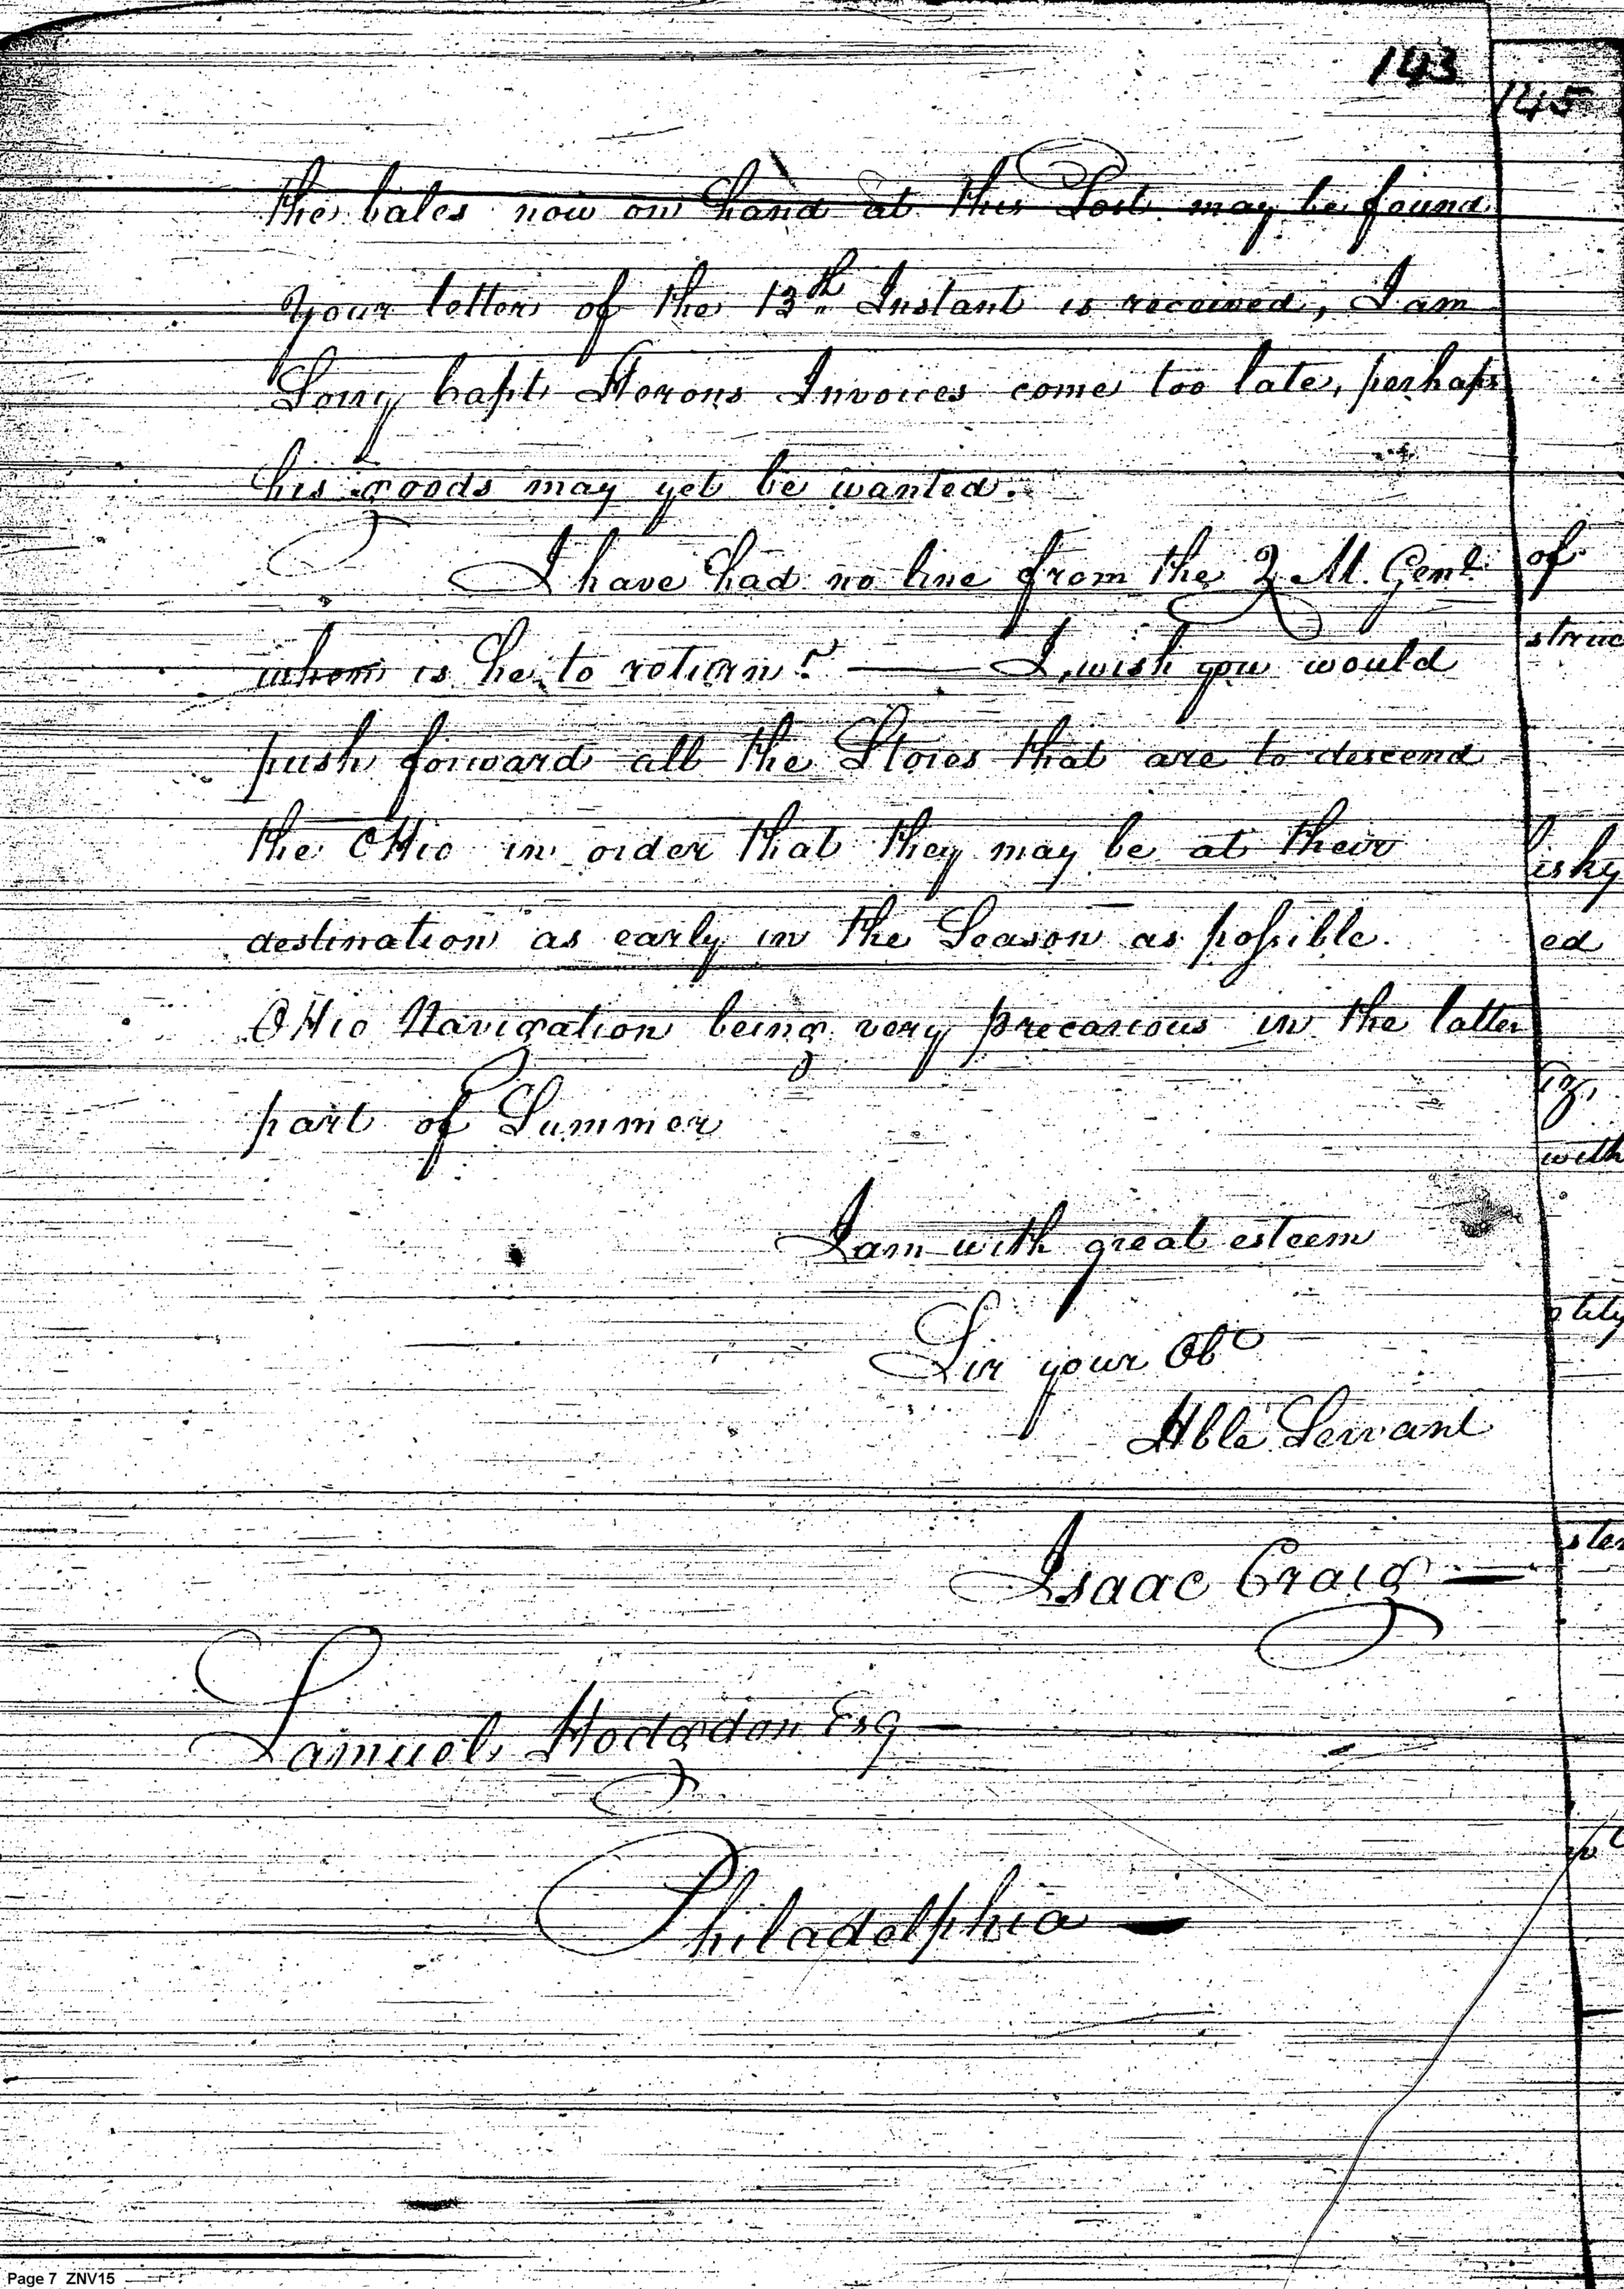 143
145
the bales now on hand at this Post may be found
your letter of the 13th Instant is received, I am
Sorry Capt Herons Invoices come too late, perhaps
his goods may yet be wanted.
I have had no line from the Q. M. Genl
when is he to return? — I wish you would
push forward all the Stores that are to descend
the OHio in order that they may be at their
destination as early in the Season as possible.
OHio Navigation being very precarious in the latter
part of Summer
I am with great esteem
Sir your Ob
Hble Servant
Isaac Craig —
Samuel Hodgdon Esq —
Philadelphia —
of
struc
isky
ed
with
Page 7 ZNV15